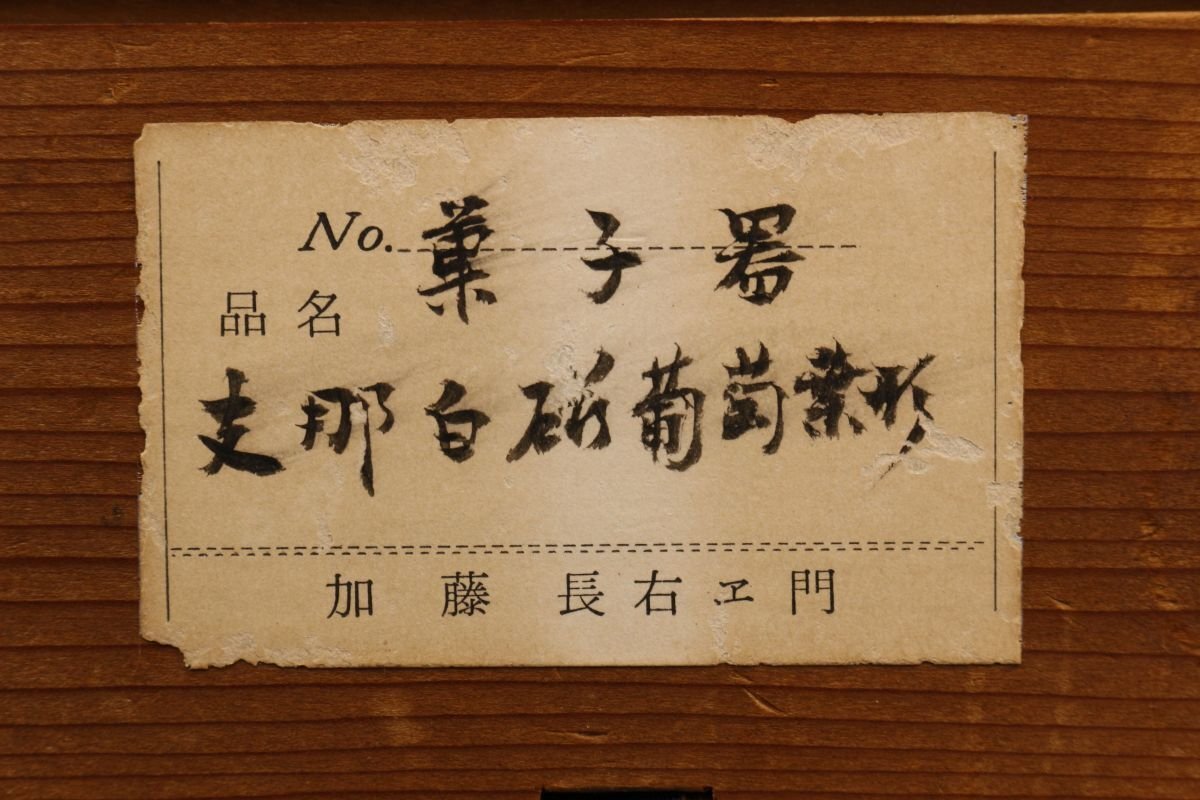 No. 菓子器
品名
支那白 葡萄葉形
加藤長右ヱ門